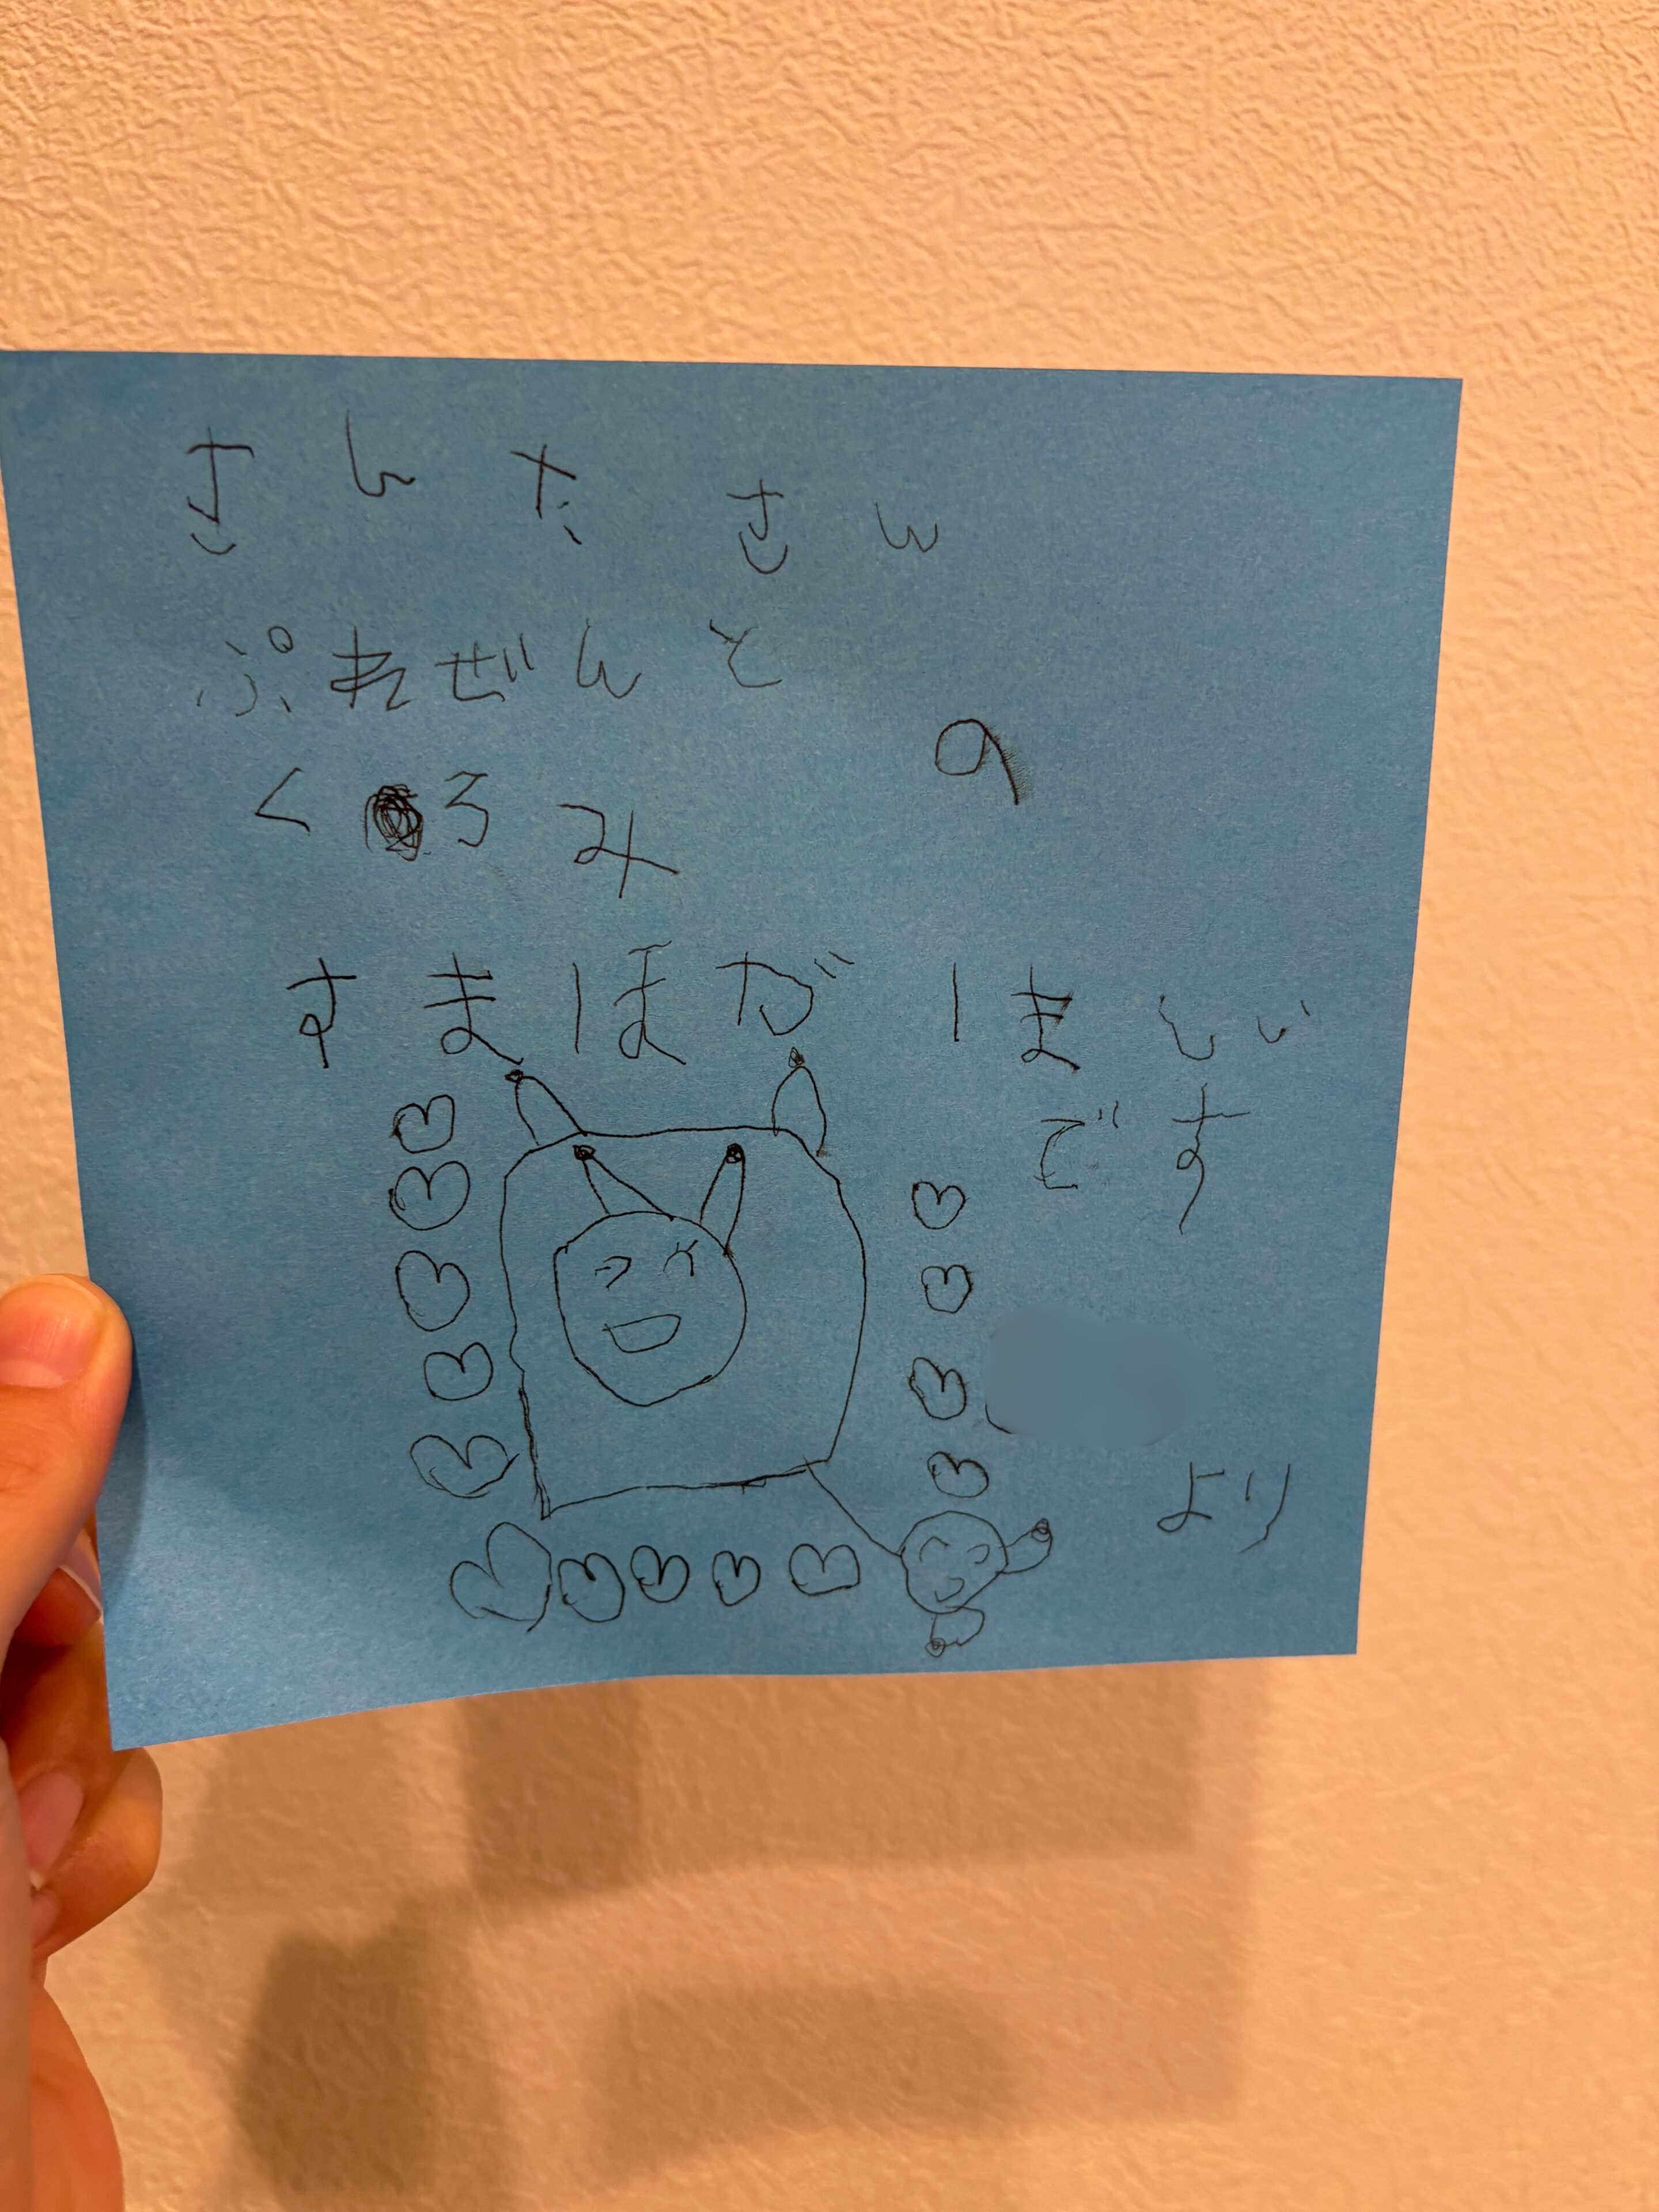 さんたさん
ぷれぜんと
くろみ の
すまほがほしい
です
より